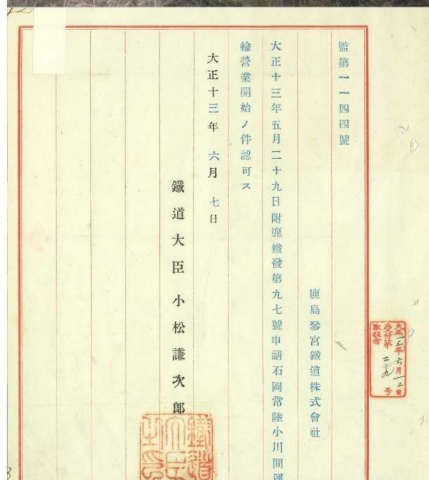 監第一一四四號
鹿島參宮鐵道株式會社
大正十三年五月二十九日附鹿鐵發第九七號申請石岡常陸小川間運
輸營業開始ノ件認可ス
大正十三年 六月 七日
鐵道大臣 小松謙次郎
鐵道大臣之印